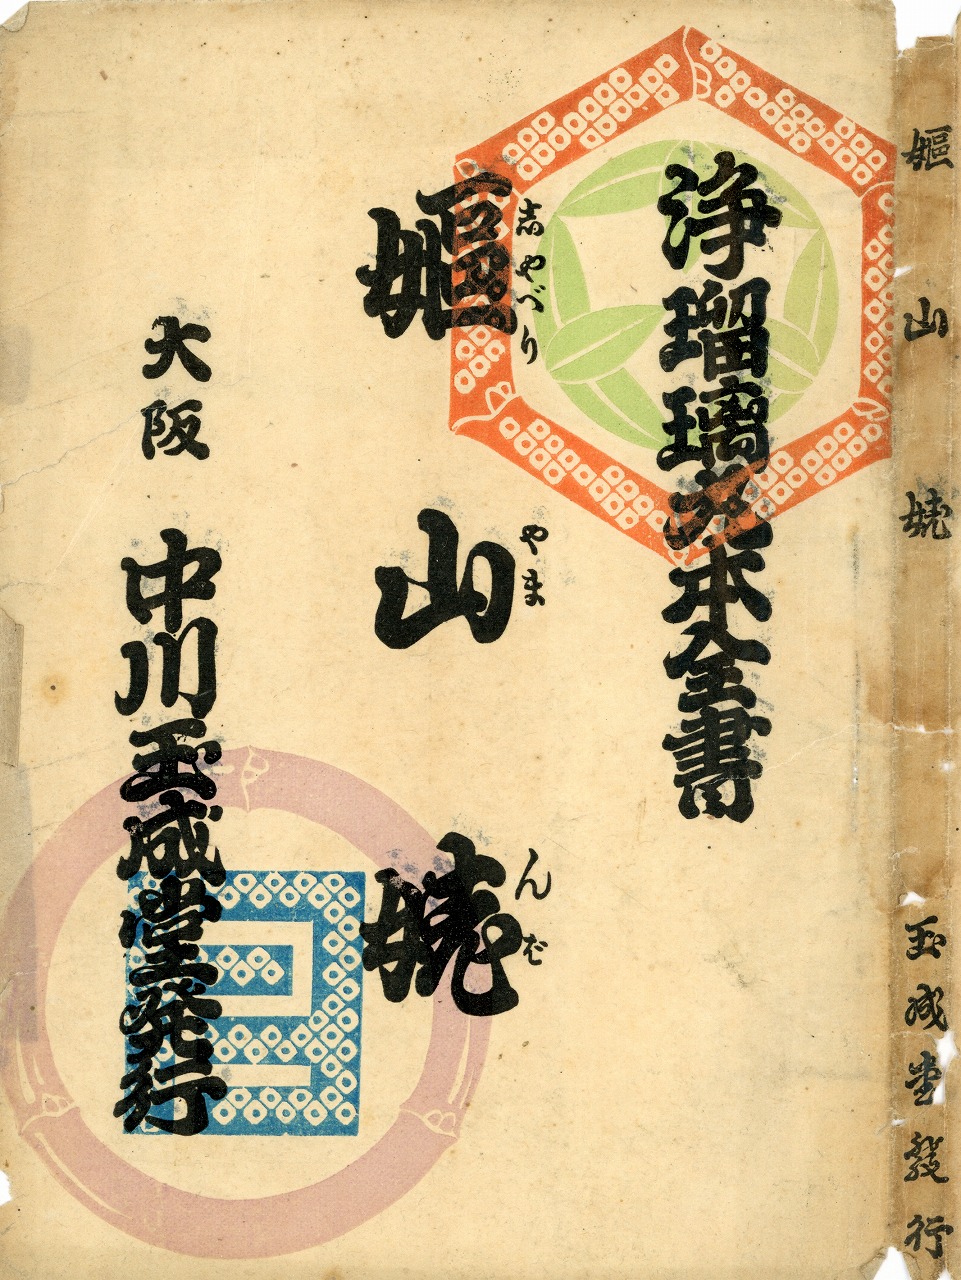 嫗山姥　玉成堂發行
浄瑠璃丸本全書
しやべり　やま　んば
嫗山姥
大阪　中川玉成堂発行